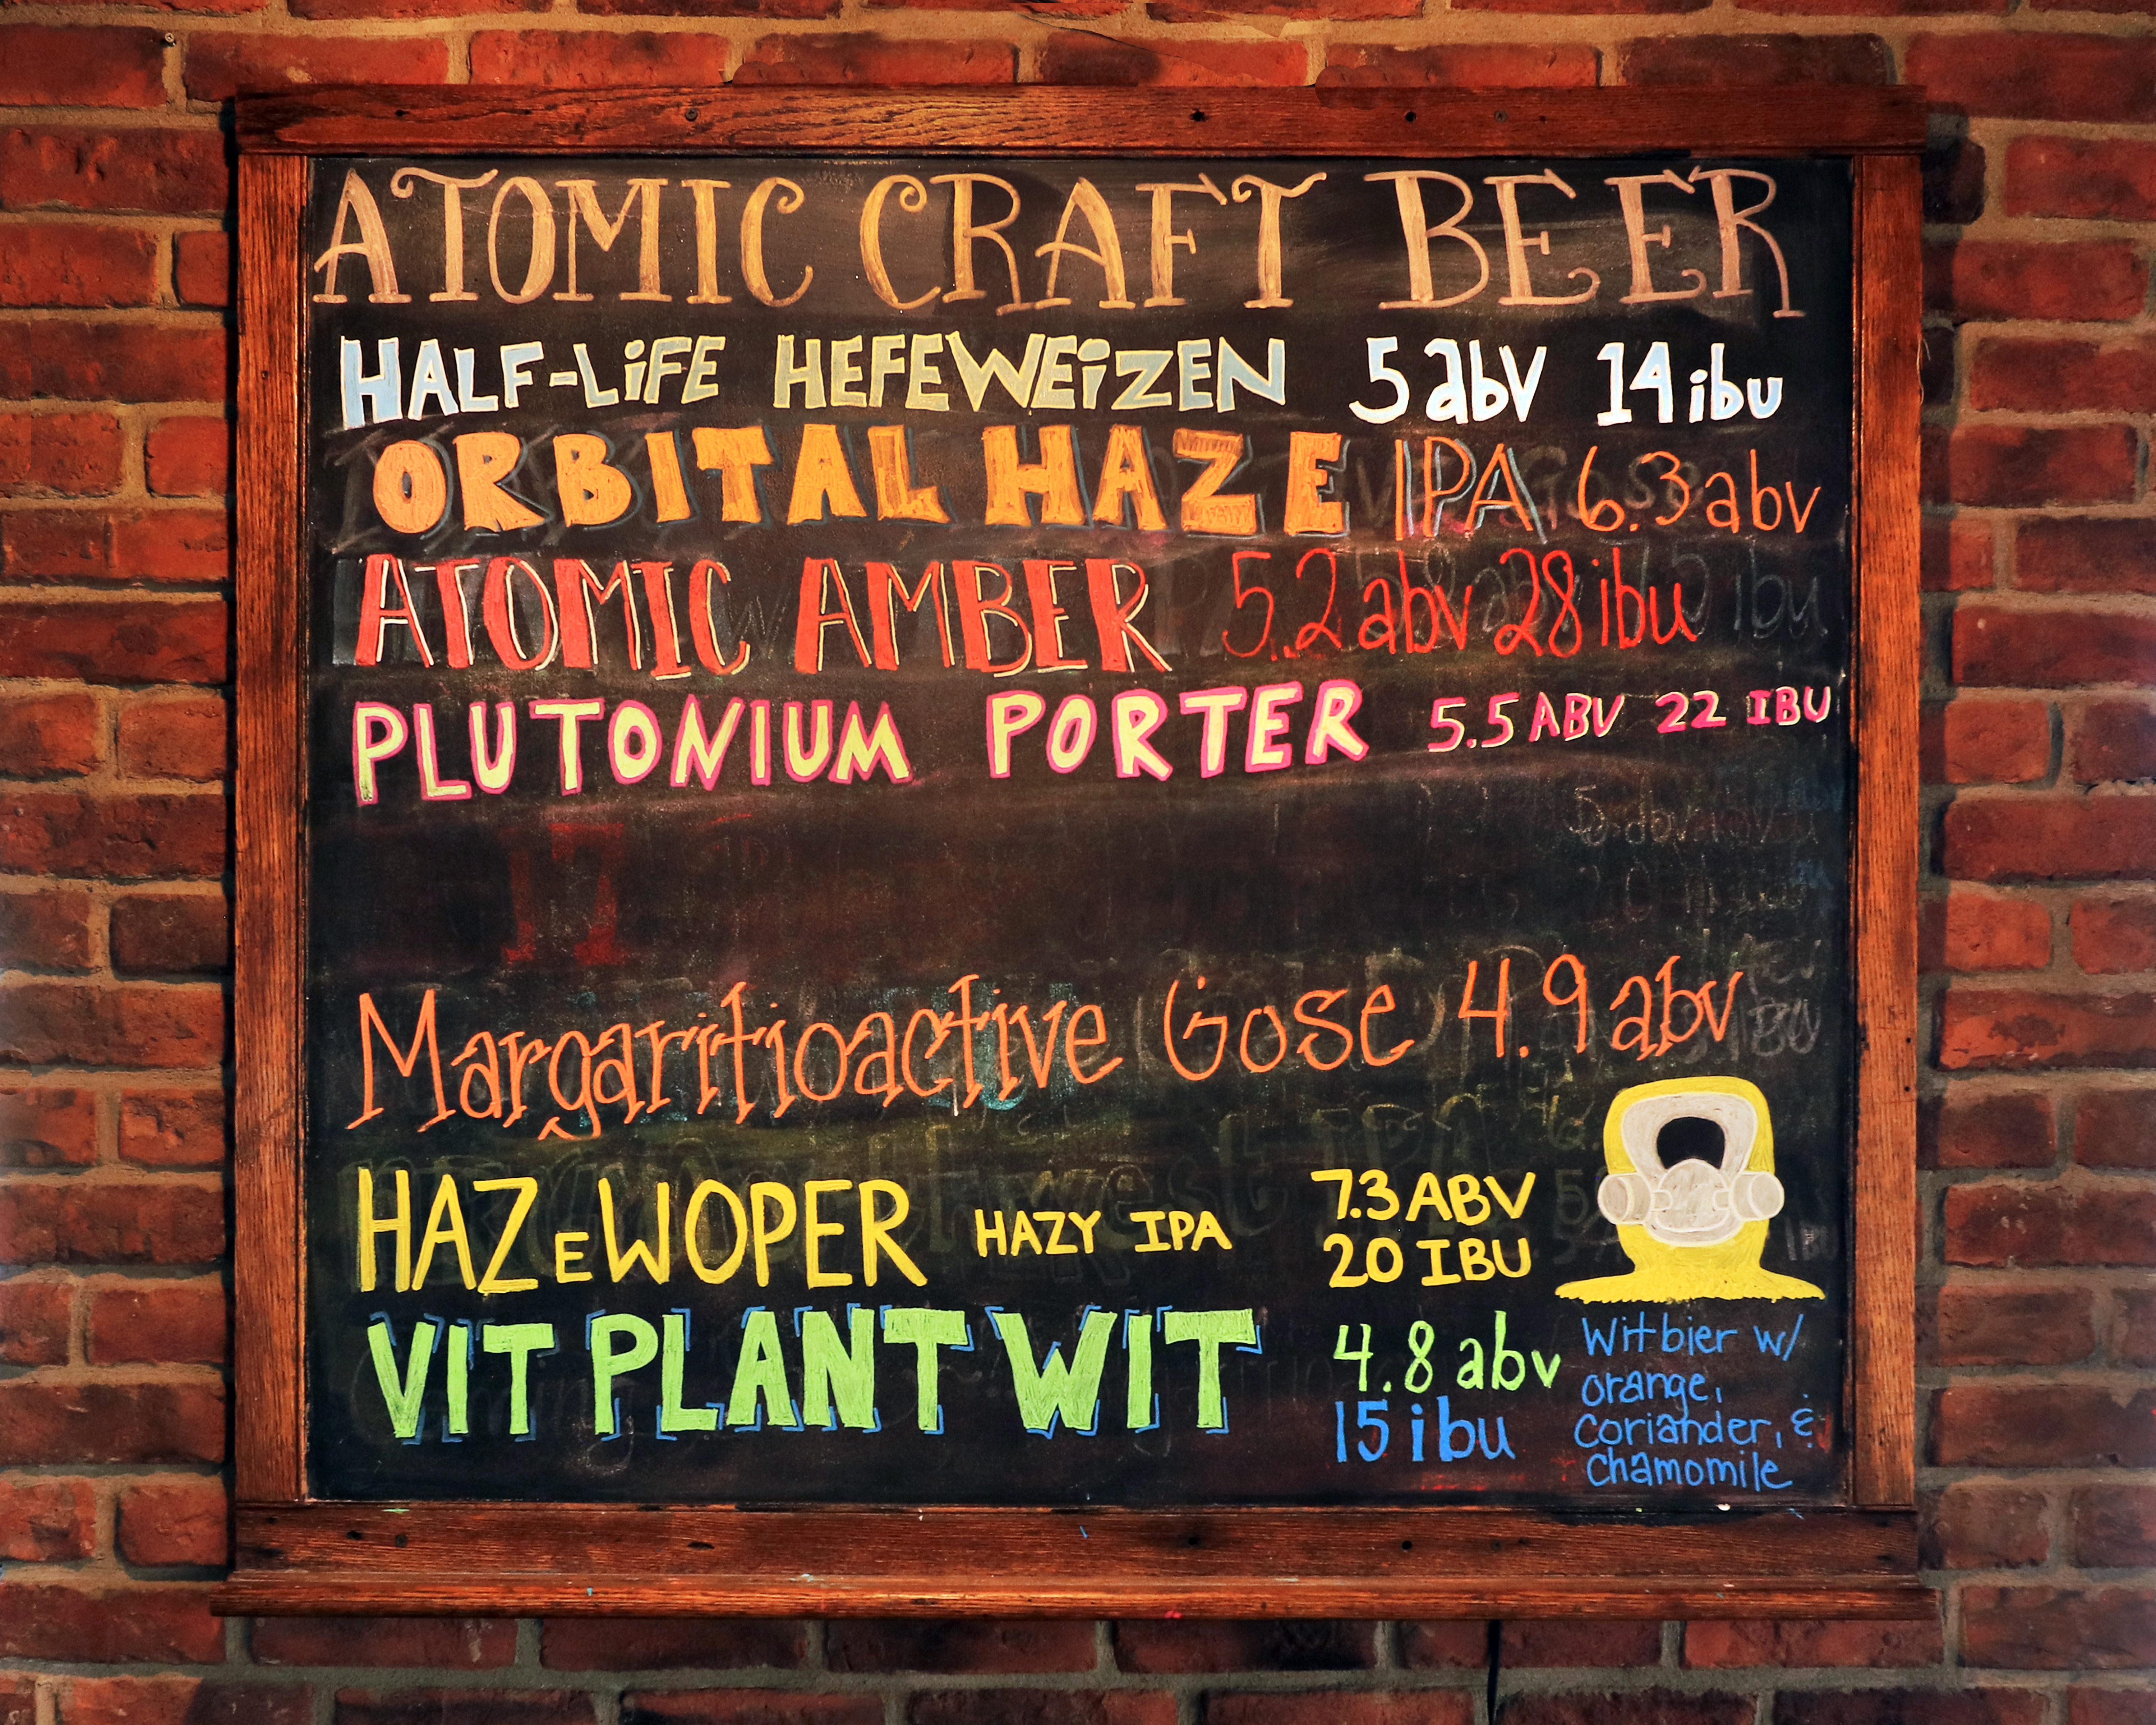 ATOMIC CRAFT BEER
HALF-LiFE HEFEWEiZEN 5 abV 14 ibu
ORBITAL HAZE IPA 6.3 abv
ATOMIC AMBER 5.2 abv 28 ibu
PLUTONIUM PORTER 5.5 ABV 22 IBU
Margaritioactive Gose 4.9 abv
HAZEWOPER HAZY IPA 7.3 ABV
20 IBU
VIT PLANT WIT 4.8 abv
15 ibu
Witbier w/
orange,
Coriander, &
Chamomile